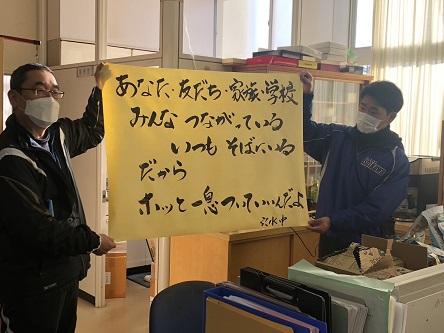 あなた・友だち・家族・学校
みんな つながっている
いつも そばにいる
だから
ホッと一息ついていいんだよ